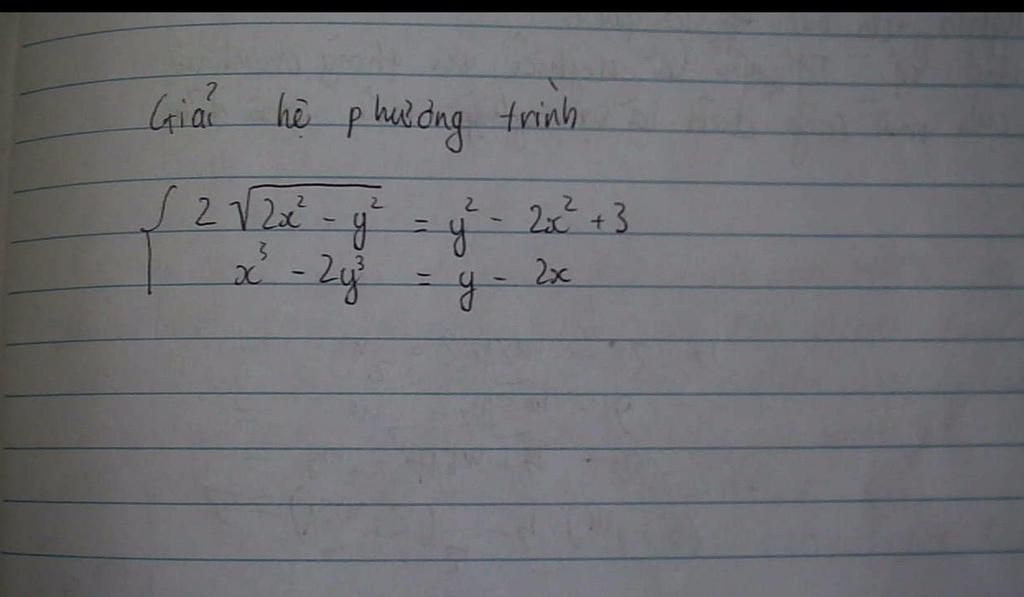 Giải hệ phương trình
2√(2x² - y²) = y² - 2x² + 3
x³ - 2y³ = y - 2x